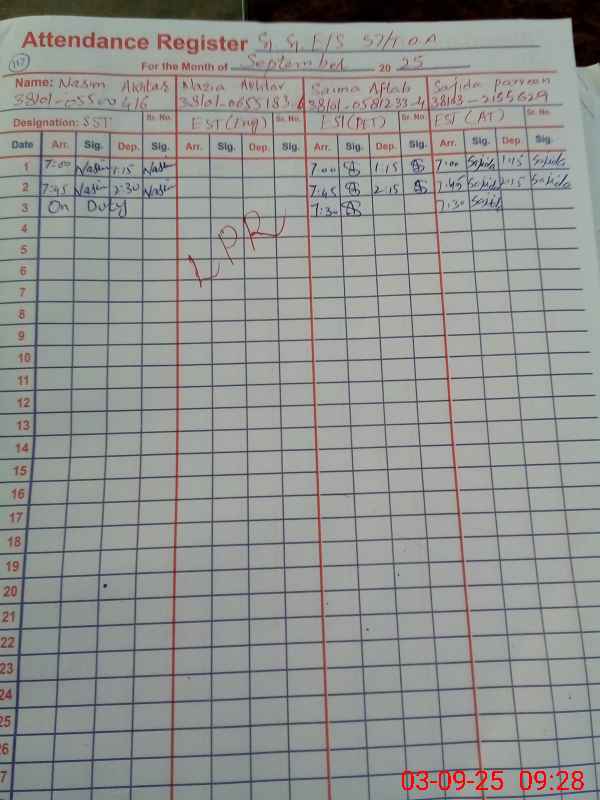 Attendance Register G. G. E/S 57/T.D.A
117
For the Month of September 20 25
Name: Nasim Akhtar Nazia Akhtar Saima Aftab Sajida parveen
38101-0655183-
Designation: SST Sr. No. EST (Eng) Sr. No. EST (PET) Sr. No. EST (AT) Sr. No.
Date Arr. Sig. Dep. Sig. Arr. Sig. Dep. Sig. Arr. Sig. Dep. Sig. Arr. Sig. Dep. Sig.
1 7:00 Nasim 1:15 Nasim 7:00 1:15 7:00 Sajida 1:15 Sajida
2 7:45 Nasim 2:30 Nasim 7:45 2:15 7:45 Sajida 2:15 Sajida
3 On Duty 7:30 7:30 Sajida
LPR
4
5
6
7
8
9
10
11
12
13
14
15
16
17
18
19
20
21
22
23
24
25
26
7
03-09-25 09:28